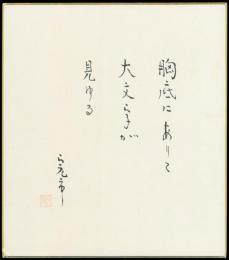 胸底にありて
大文字が
見ゆる